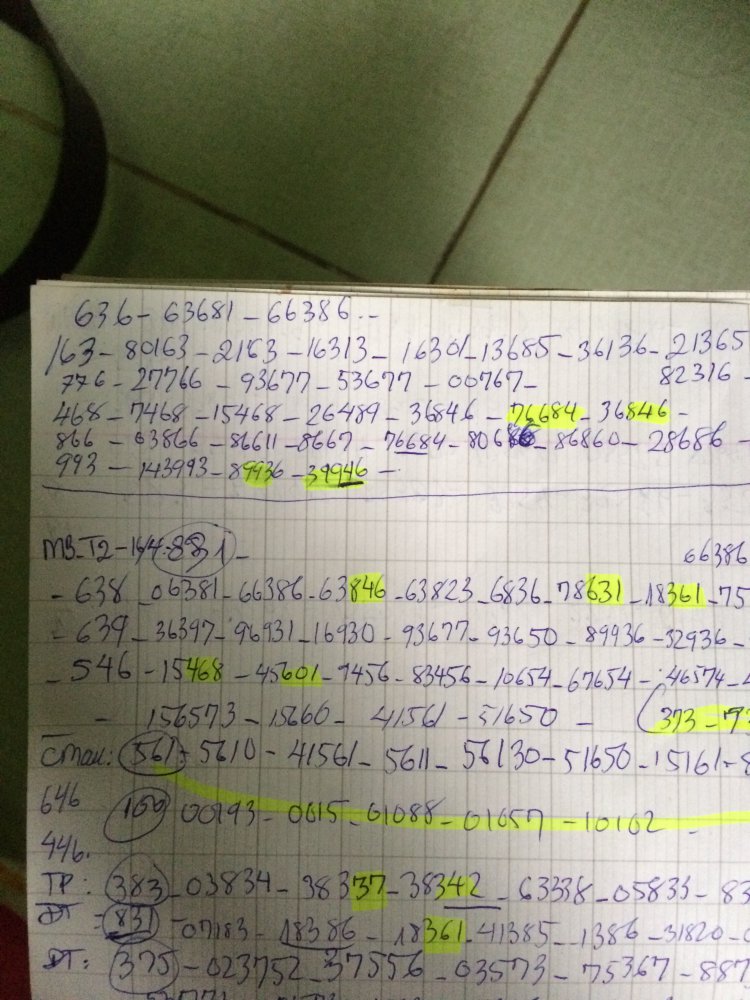 636 - 63681 - 66386 --
163 - 80163 - 2163 - 16313 - 16301 - 13685 - 36136 - 21365
776 - 27766 - 93677 - 53677 - 00767 - 82316 -
468 - 7468 - 15468 - 26489 - 36846 - 76684 - 36846 -
866 - 63866 - 86611 - 8667 - 76684 - 86860 - 28686 -
993 - 143993 - 89936 - 39946 -
MB-T2-16/4: 831 -
66386
- 638 - 06381 - 66386 - 63846 - 63823 - 6836 - 78631 - 18361 - 75
- 639 - 36397 - 96931 - 16930 - 93677 - 93650 - 89936 - 32936 -
- 546 - 15468 - 45601 - 9456 - 83456 - 10654 - 67654 - 46574 -
- 156573 - 15660 - 41561 - 51650 - (373 - 73
561 - 5610 - 41561 - 5611 - 56130 - 51650 - 15161 - 8
646
160 00193 - 0615 - 61088 - 01657 - 10162 -
446.
TP: 383 - 03834 - 38337 - 38342 - 63338 - 05833 - 83
ĐT = 831 - 07183 - 18386 - 18361 - 41385 - 1386 - 31820 -
ĐT: 375 - 023752 - 37556 - 03573 - 75367 - 887